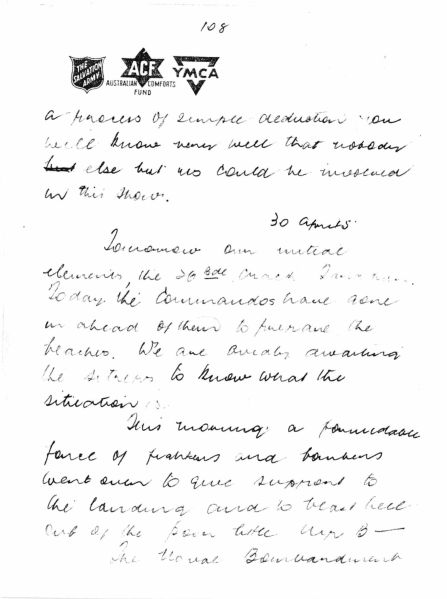 108
THE SALVATION ARMY
ACF
AUSTRALIAN COMFORTS FUND
YMCA
a process of simple deduction you
will know very well that nobody
else but us could be involved
in this show.
30 April 5
Tomorrow our initial
elements, the 26 Bde, Tarakan.
Today the Commandos have gone
in ahead of them to prepare the
beaches. We are avidly awaiting
the sitreps to know what the
situation is.
This morning a formidable
force of fighters and bombers
went over to give support to
the landing and to blast hell
out of the poor little
The Naval Bombardment